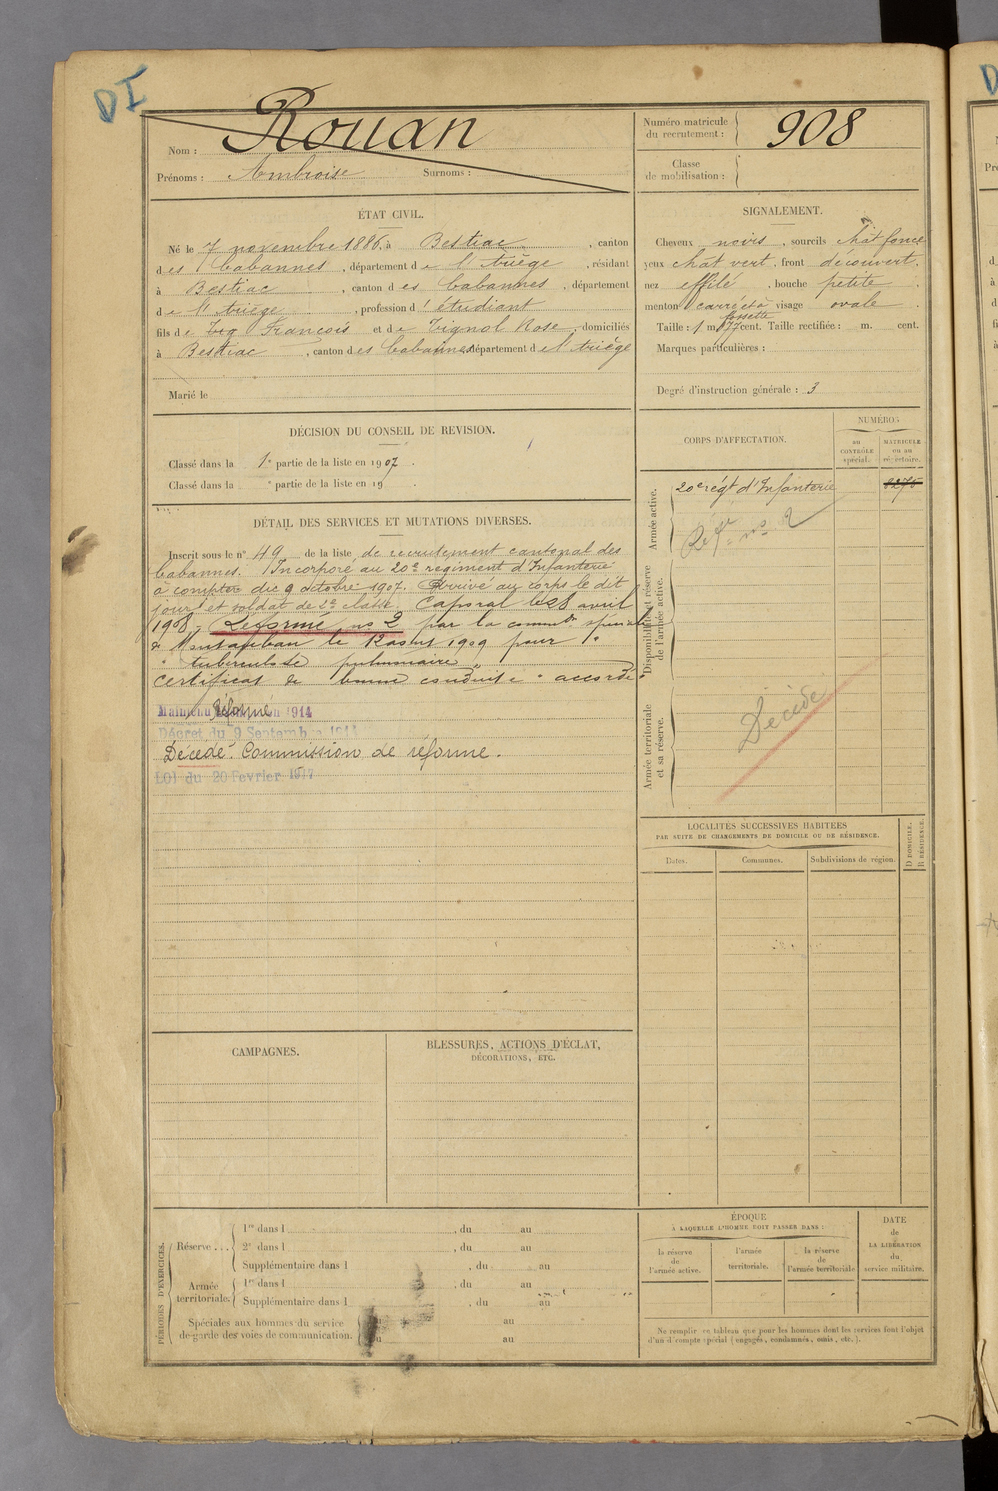 DI
Nom : Rouan
Prénoms : Ambroise Surnoms :
Numéro matricule du recrutement : 908
Classe de mobilisation :
ÉTAT CIVIL.
Né le 7 novembre 1886, à Bestiac, canton
des Cabannes, département de l'Ariège, résidant
à Bestiac, canton des Cabannes, département
de l'Ariège, profession d'étudiant
fils de François et de Rose, domiciliés
à Bestiac, canton des Cabannes, département de l'Ariège
Marié le
SIGNALEMENT.
Cheveux noirs, sourcils chât foncé
yeux chât vert, front découvert.
nez effilé, bouche petite
menton carré à fossette visage ovale
Taille : 1 m. 77 cent. Taille rectifiée : m. cent.
Marques particulières :
Degré d'instruction générale : 3
DÉCISION DU CONSEIL DE REVISION.
Classé dans la 1e partie de la liste en 1907.
Classé dans la e partie de la liste en 19
DÉTAIL DES SERVICES ET MUTATIONS DIVERSES.
Inscrit sous le n° 49 de la liste de recrutement cantonal des
Cabannes. Incorporé au 20e régiment d'Infanterie
à compter du 9 octobre 1907. Arrivé au corps le dit
jour et soldat de 2e classe. Caporal le 28 avril
1908. Réformé no 2 par la spéciale
de Montauban le 12 août 1909 pour "
" tuberculose pulmonaire "
certificat de bonne conduite " accordé "
Maintenu Réformé en 1914
Décret du 9 Septembre 1914
Décédé. Commission de réforme.
LOI du 20 Fevrier 1917
CORPS D'AFFECTATION.
NUMÉROS
au CONTRÔLE spécial.
MATRICULE ou au répertoire.
Armée active.
20e régt d'Infanterie 8275
Réfé no 2
Disponibilité et réserve de l'armée active.
Armée territoriale et sa réserve.
Décédé
LOCALITÉS SUCCESSIVES HABITÉES
PAR SUITE DE CHANGEMENTS DE DOMICILE OU DE RÉSIDENCE.
Dates. Communes. Subdivisions de région. D DOMICILE. R RÉSIDENCE.
CAMPAGNES.
BLESSURES, ACTIONS D'ÉCLAT,
DÉCORATIONS, ETC.
PÉRIODES D'EXERCICES.
Réserve ... 1re dans l , du au
2e dans l , du au
Supplémentaire dans l , du au
Armée territoriale. 1re dans l , du au
Supplémentaire dans l , du au
Spéciales aux hommes du service de garde des voies de communication. du au
du au
ÉPOQUE
À LAQUELLE L'HOMME DOIT PASSER DANS :
la réserve de l'armée active.
l'armée territoriale.
la réserve de l'armée territoriale
DATE de LA LIBÉRATION du service militaire.
Ne remplir ce tableau que pour les hommes dont les services font l'objet
d'un décompte spécial (engagés, condamnés, omis, etc.).